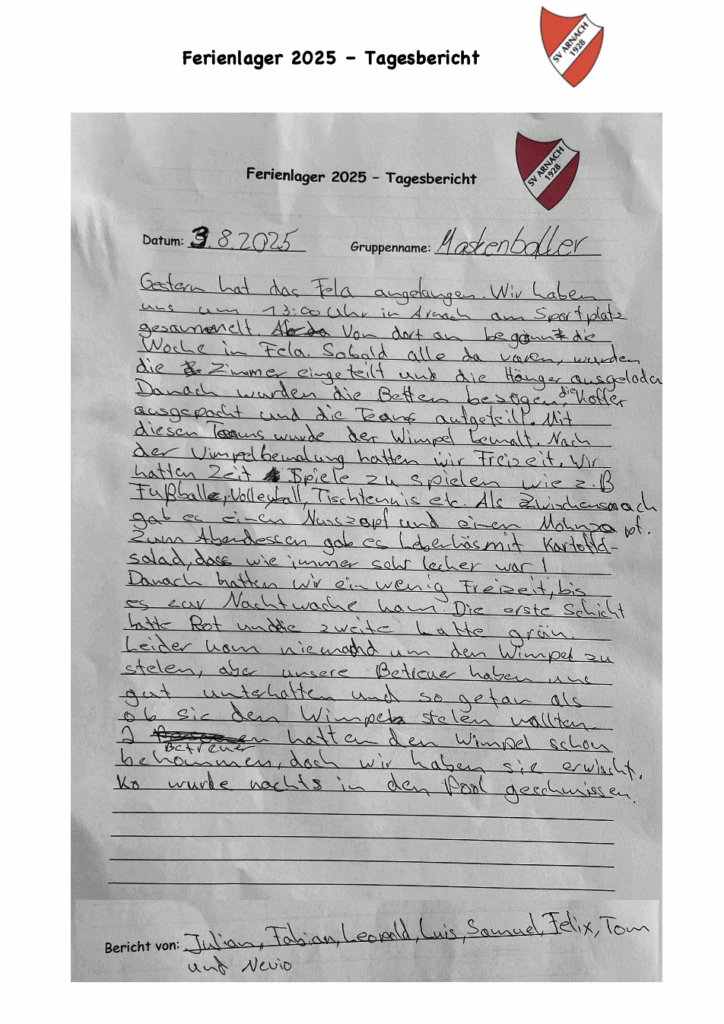 Ferienlager 2025 – Tagesbericht
SV ARNACH
1928
Ferienlager 2025 – Tagesbericht
SV ARNACH
1928
Datum: 3.8.2025 Gruppenname: Maskenballer
Gestern hat das Fela angefangen. Wir haben
uns um 13:00 Uhr in Arnach am Sportplatz
gesammelt. Von dort an begann die
Woche im Fela. Sobald alle da waren, wurden
die Zimmer eingeteilt und die Hänger ausgeladen
Danach wurden die Betten bezogen, die Koffer
ausgepackt und die Teams aufgeteilt. Mit
diesen Teams wurde der Wimpel bemalt. Nach
der Wimpelbemalung hatten wir Freizeit. Wir
hatten Zeit Spiele zu spielen wie z.B
Fußball, Volleyball, Tischtennis etc. Als Zwischensnack
gab es einen Nusszopf und einen Mohnzopf.
Zum Abendessen gab es Leberkäs mit Kartoffel-
salad, dass wie immer sehr lecker war!
Danach hatten wir ein wenig Freizeit, bis
es zur Nachtwache kam. Die erste Schicht
hatte Rot und die zweite hatte grün.
Leider kam niemand um den Wimpel zu
stelen, aber unsere Betreuer haben uns
gut unterhalten und so getan als
ob sie den Wimpel stelen wollten.
2 Betreuer hatten den Wimpel schon
bekommen, doch wir haben sie erwischt.
Ko wurde nachts in den Pool geschmissen.
Bericht von: Julian, Fabian, Leopold, Luis, Samuel, Felix, Tom
und Nevio